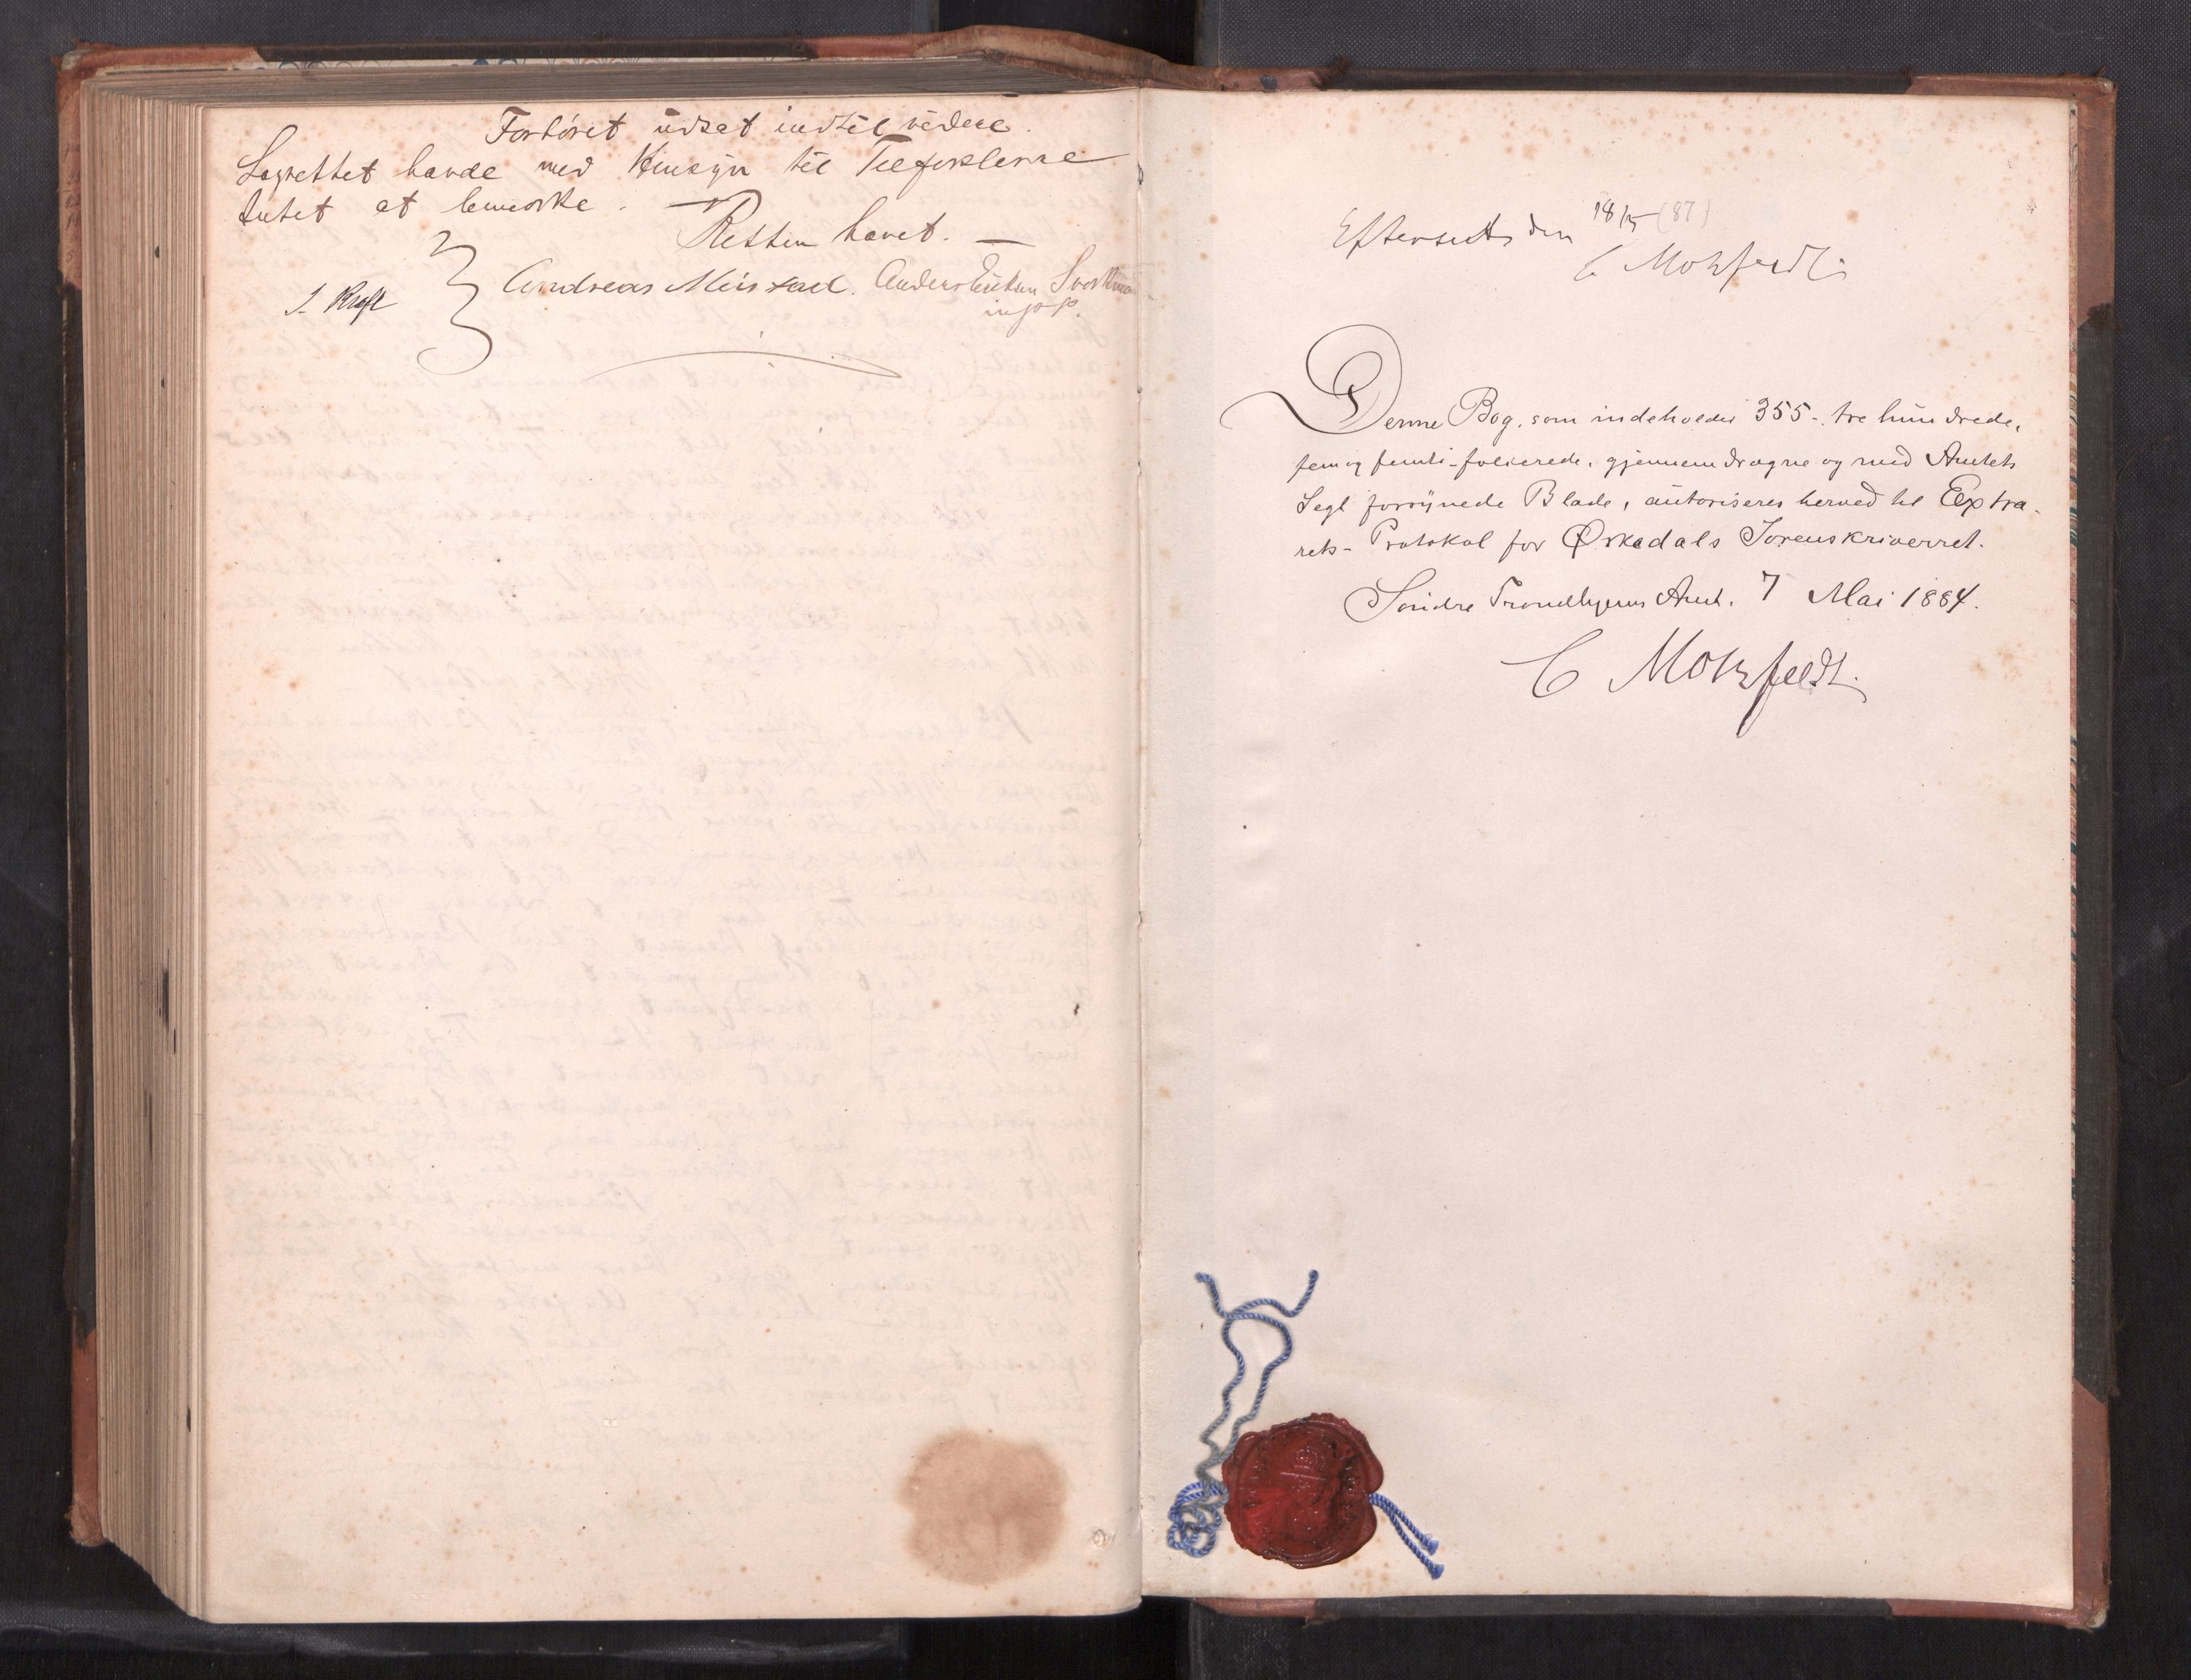 Forhöret udsat indtil videre.
Lagrettet havde med Hensyn til Tilførslerne
Intet at bemærke. —
Retten hævet. —
I. Kraft
Andreas Mel Anders Eriksen Svorkmo
m. p. P.
Efterseet den 18/5 (87)
C Motzfeldt
Denne Bog, som indeholder 355 - tre hundrede,
fem og femti - folierede, gjennemdragne og med Amtets
Segl forsynede Blade, autoriseres herved til Extra-
rets- Protokol for Ørkedals Sorenskriverret.
Söndre Trondhjems Amt. 7 Mai 1884.
C Motzfeldt.